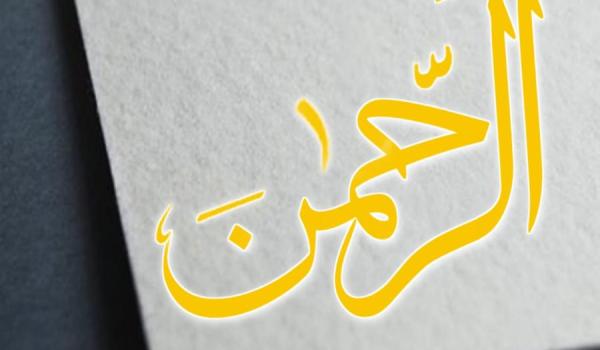 الرَّحمٰنَ